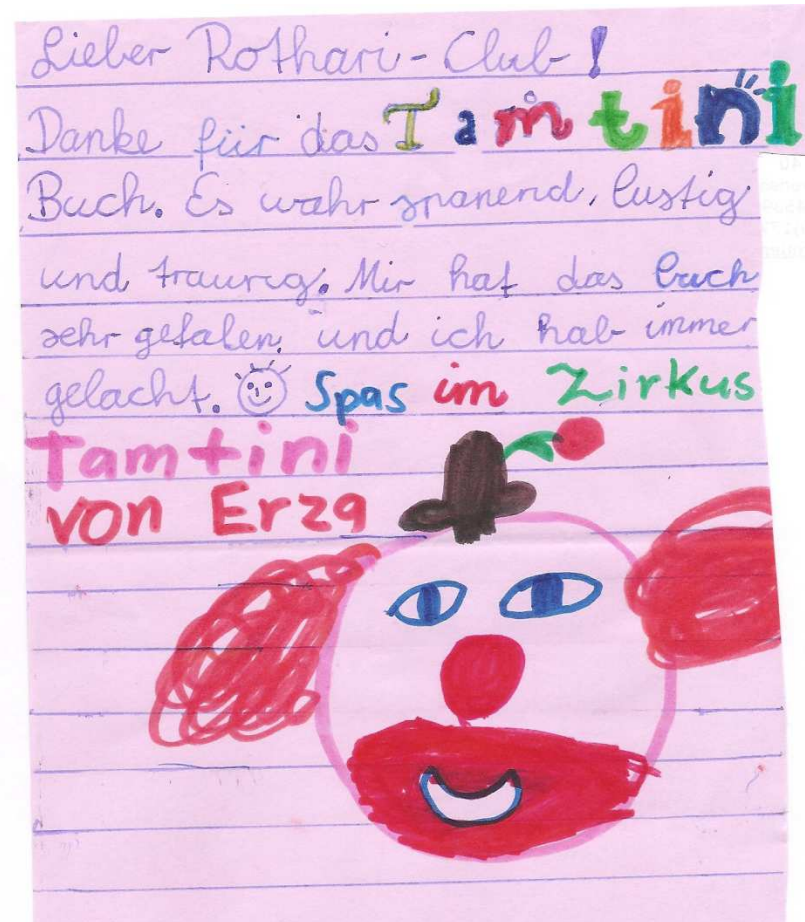 Lieber Rothari-Club!
Danke für das Tamtini
Buch. Es wahr spanend, lustig
und traurig. Mir hat das buch
sehr gefalen und ich hab immer
gelacht. Spas im Zirkus
Tamtini
von Erza